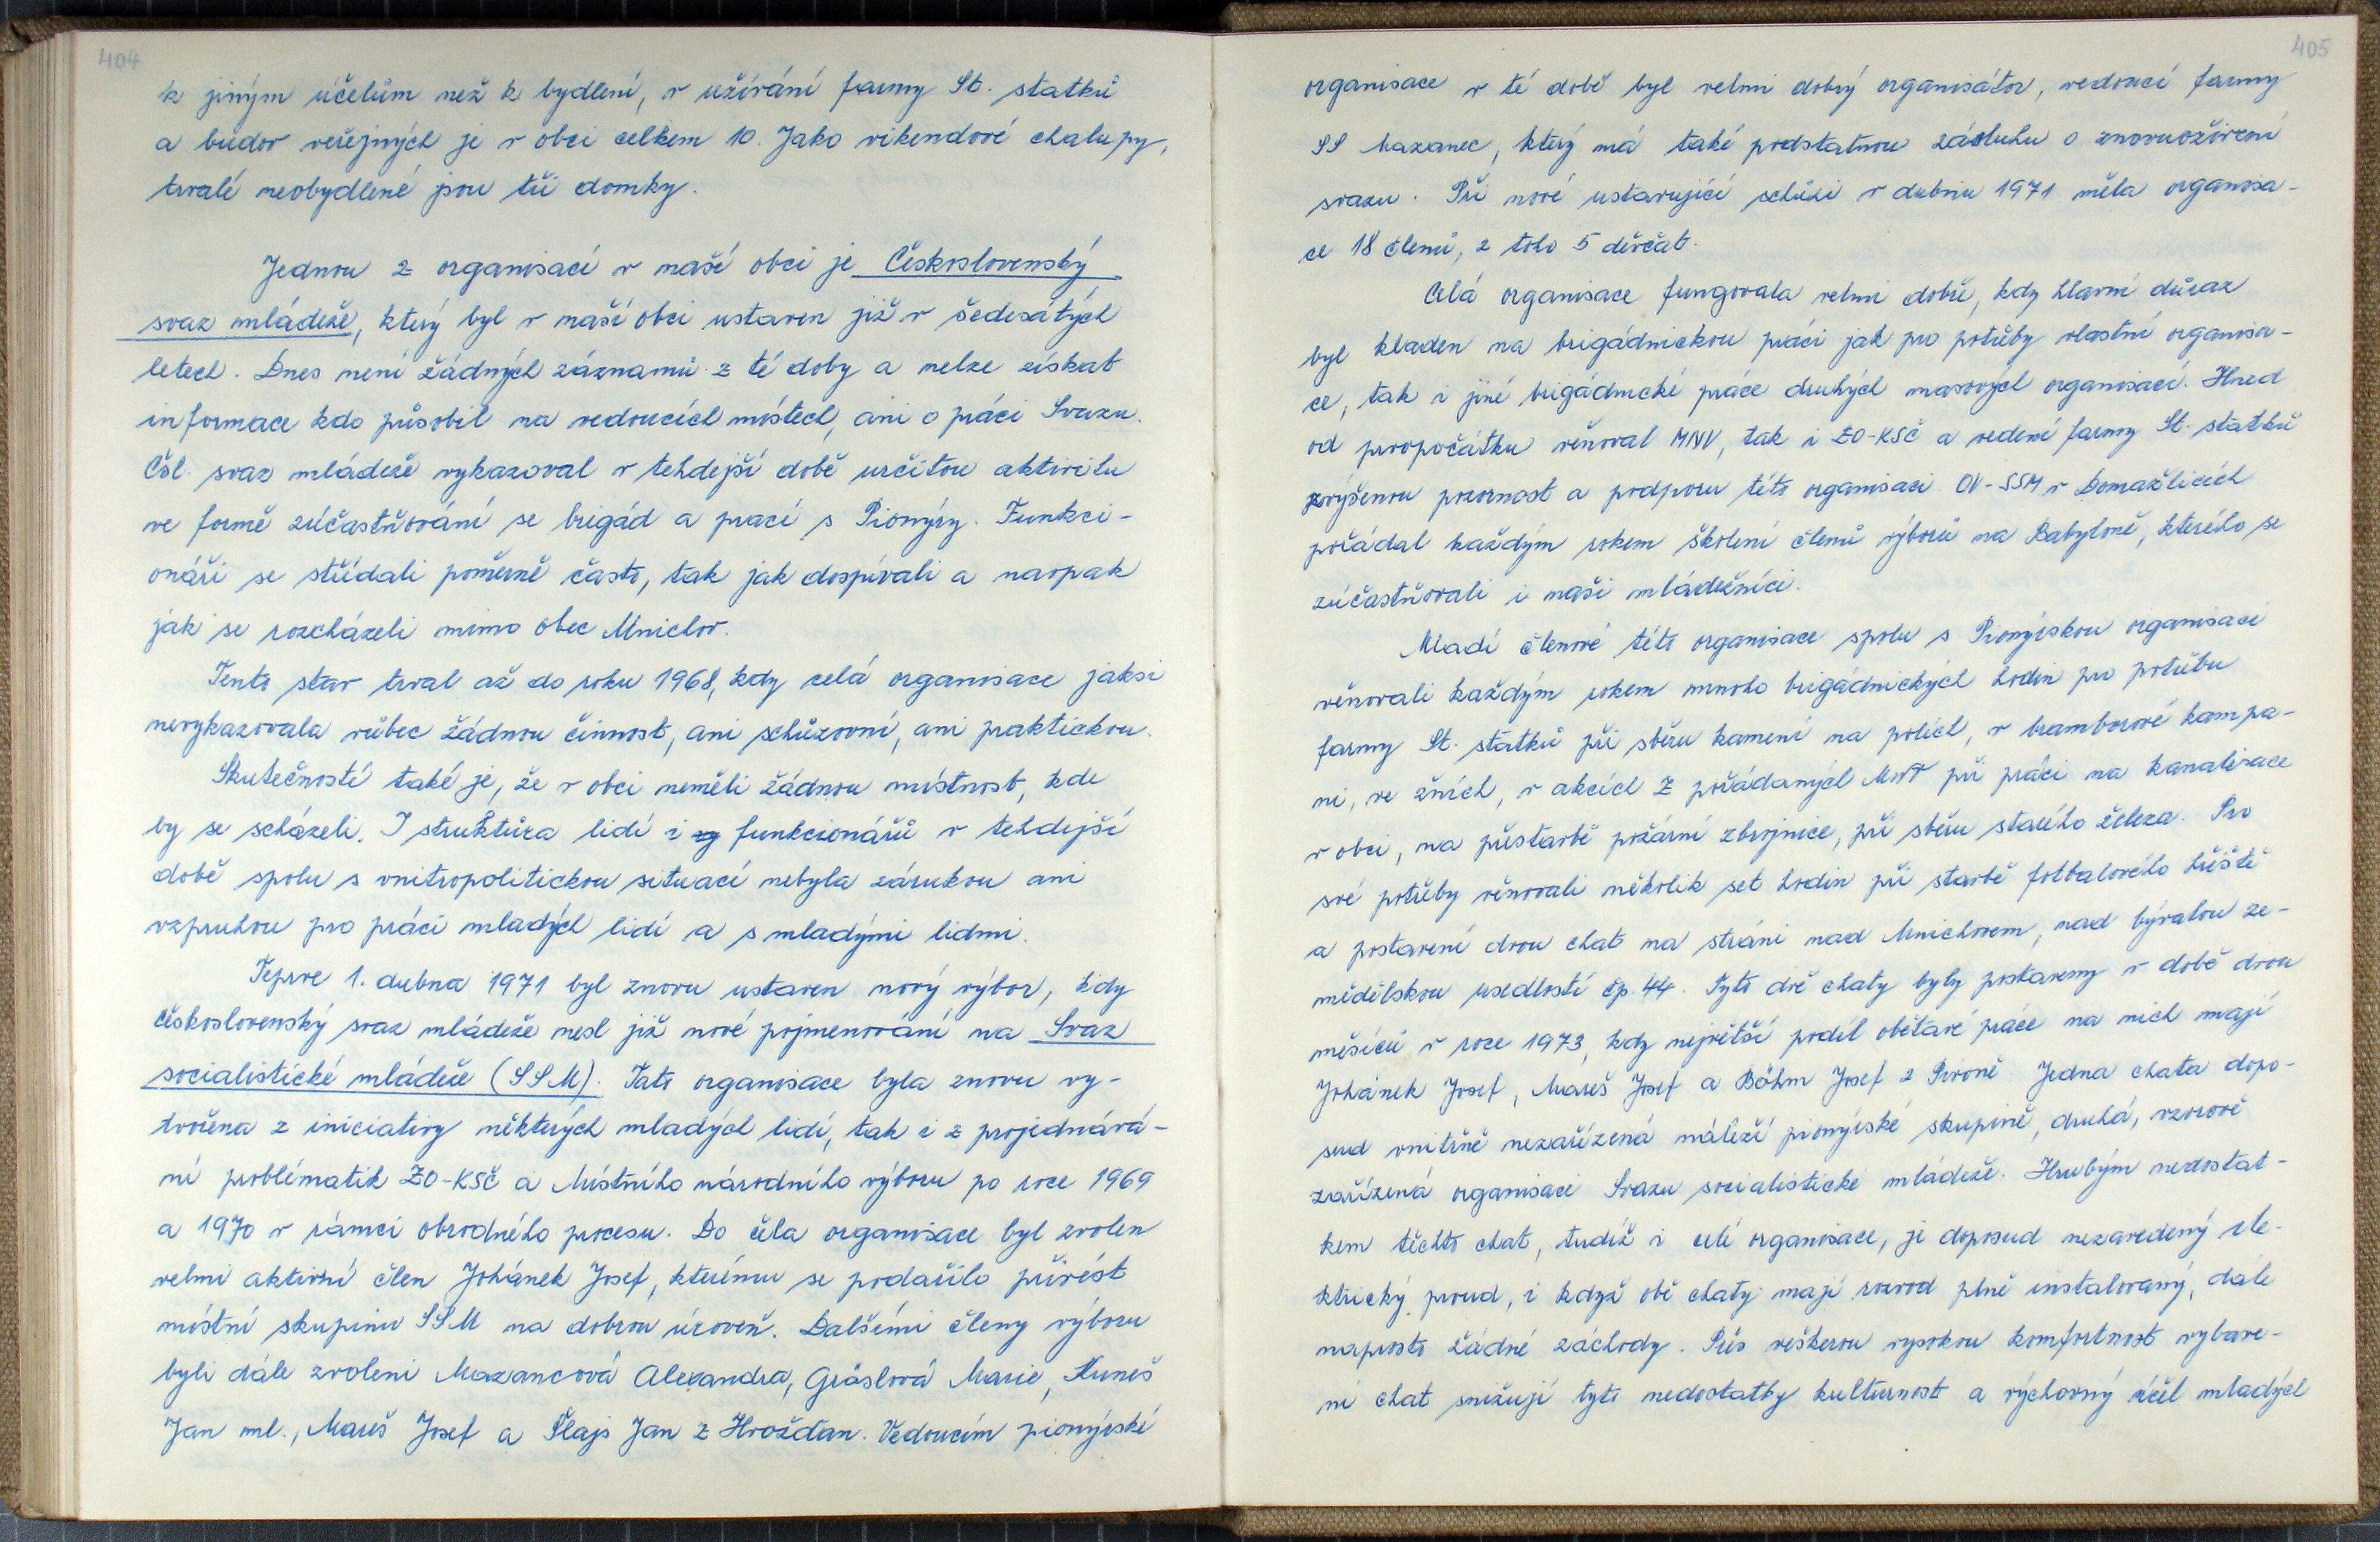 404
k jiným účelům než k bydlení, v užívání farmy St. statků
a budov veřejných je v obci celkem 10. Jako vikendové chalupy,
trvalé neobydlené jsou tři domky.
Jednou z organisací v naší obci je Československý
svaz mládeže, který byl v naší obci ustaven již v šedesátých
letech. Dnes není žádných záznamů z té doby a nelze získat
informace kdo působil na vedoucích místech, ani o práci Svazu.
Čsl. svaz mládeže vykazoval v tehdejší době určitou aktivitu
ve formě zúčastňování se brigád a prací s Pionýry. Funkci-
onáři se střídali poměrně často, tak jak dospívali a naopak
jak se rozcházeli mimo obec Mnichov.
Tento stav trval až do roku 1968, kdy celá organisace jaksi
nevykazovala vůbec žádnou činnost, ani schůzovní, ani praktickou.
Skutečností také je, že v obci neměli žádnou místnost, kde
by se scházeli. I struktůra lidí i funkcionářů v tehdejší
době spolu s vnitropolitickou situací nebyla zárukou ani
vzpruhou pro práci mladých lidí a s mladými lidmi.
Teprve 1. dubna 1971 byl znovu ustaven nový výbor, kdy
československý svaz mládeže nesl již nové pojmenování na Svaz
socialistické mládeže (SSM). Tato organisace byla znovu vy-
tvořena z iniciativy některých mladých lidí, tak i z projednává-
ní problématik ZO-KSČ a Místního národního výboru po roce 1969
a 1970 v rámci obrodného procesu. Do čela organisace byl zvolen
velmi aktivní člen Johánek Josef, kterému se podařilo přivést
místní skupinu SSM na dobrou úroveň. Dalšími členy výboru
byli dále zvoleni Mazancová Alexandra, Gräslová Marie, Kuneš
Jan ml., Mareš Josef a Šlajs Jan z Hvožďan. Vedoucím pionýrské
405
organisace v té době byl velmi dobrý organisátor, vedoucí farmy
SS Mazanec, který má také podstatnou zásluhu o znovuoživení
svazu. Při nové ustavující schůzi v dubnu 1971 měla organisa-
ce 18 členů, z toho 5 děvčat.
Celá organisace fungovala velmi dobře, kdy hlavní důraz
byl kladen na brigádnickou práci jak pro potřeby vlastní organisa-
ce, tak i jiné brigádnické práce druhých masových organisací. Hned
od prvopočátku věnoval MNV, tak i ZO-KSČ a vedení farmy St. statků
zvýšenou pozornost a podporu této organisaci. OV-SSM v Domažlicích
pořádal každým rokem školení členů výborů na Babyloně, kterého se
zúčastňovali i naši mládežníci.
Mladí členové této organisace spolu s Pionýrskou organisací
věnovali každým rokem mnoho brigádnických hodin pro potřebu
farmy St. statků při sběru kamení na polích, v bramborové kampa-
ni, ve žních, v akcích Z pořádaných MNV při práci na kanalisace
v obci, na přestavbě požární zbrojnice, při sběru starého železa. Pro
své potřeby věnovali několik set hodin při stavbě fotbalového hřiště
a postavení dvou chat na stráni nad Mnichovem, nad bývalou ze-
mědělskou usedlostí čp. 44. Tyto dvě chaty byly postaveny v době dvou
měsíců v roce 1973, kdy největší podíl obětavé práce na nich mají
Johánek Josef, Mareš Josef a Böhm Josef z Pivoně. Jedna chata dopo-
sud vnitřně nezařízená náleží pionýrské skupině, druhá, vzorově
zařízená organisaci Svazu socialistické mládeže. Hrubým nedostat-
kem těchto chat, tudíž i celé organisace, je doposud nezavedený ele-
ktrický proud, i když obě chaty mají rozvod plně instalovaný, dále
naprosto žádné záchody. Přes veškerou vysokou komfortnost vybave-
ní chat snižují tyto nedostatky kulturnost a výchovný účel mladých